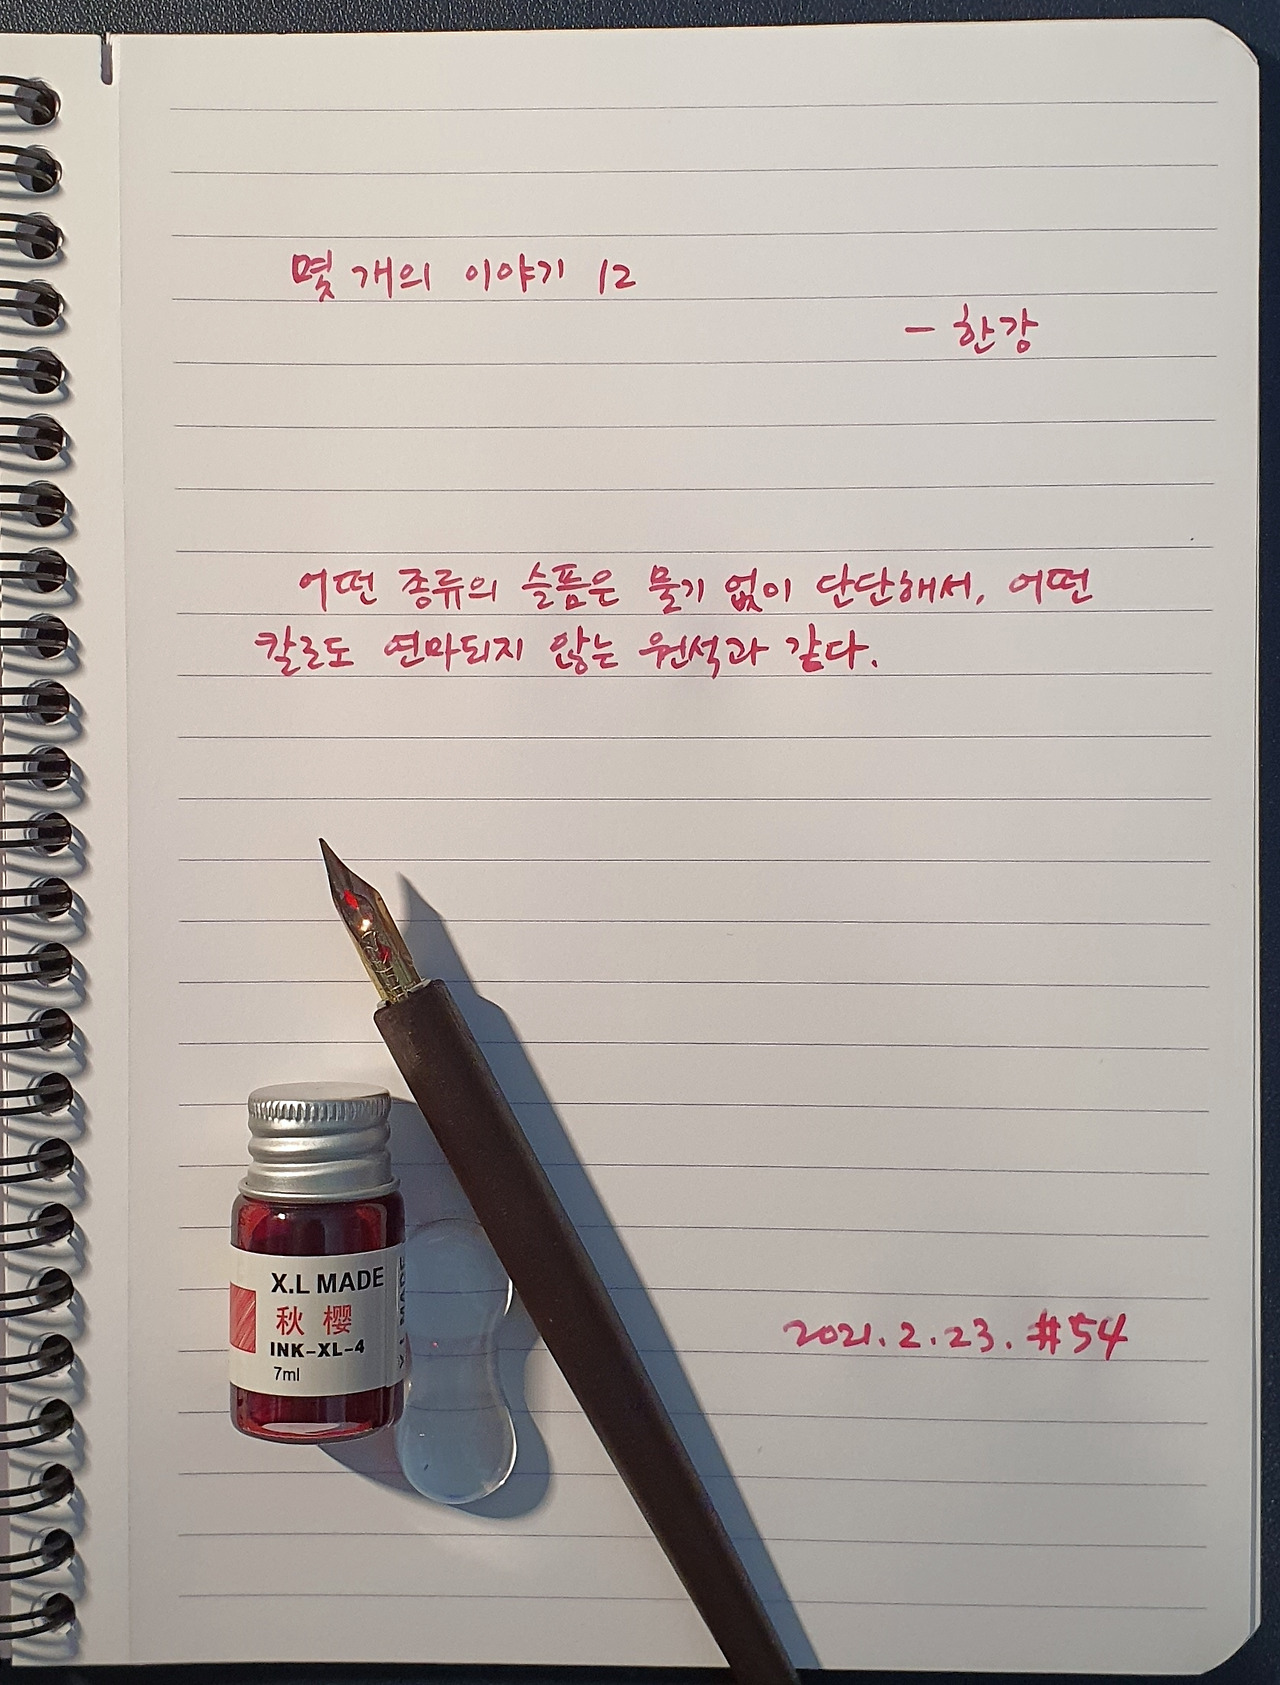 몇 개의 이야기 12
- 한강
어떤 종류의 슬픔은 물기 없이 단단해서, 어떤
칼로도 연마되지 않는 원석과 같다.
X.L MADE
秋樱
INK-XL-4
7ml
X.L MADE
2021.2.23. #54